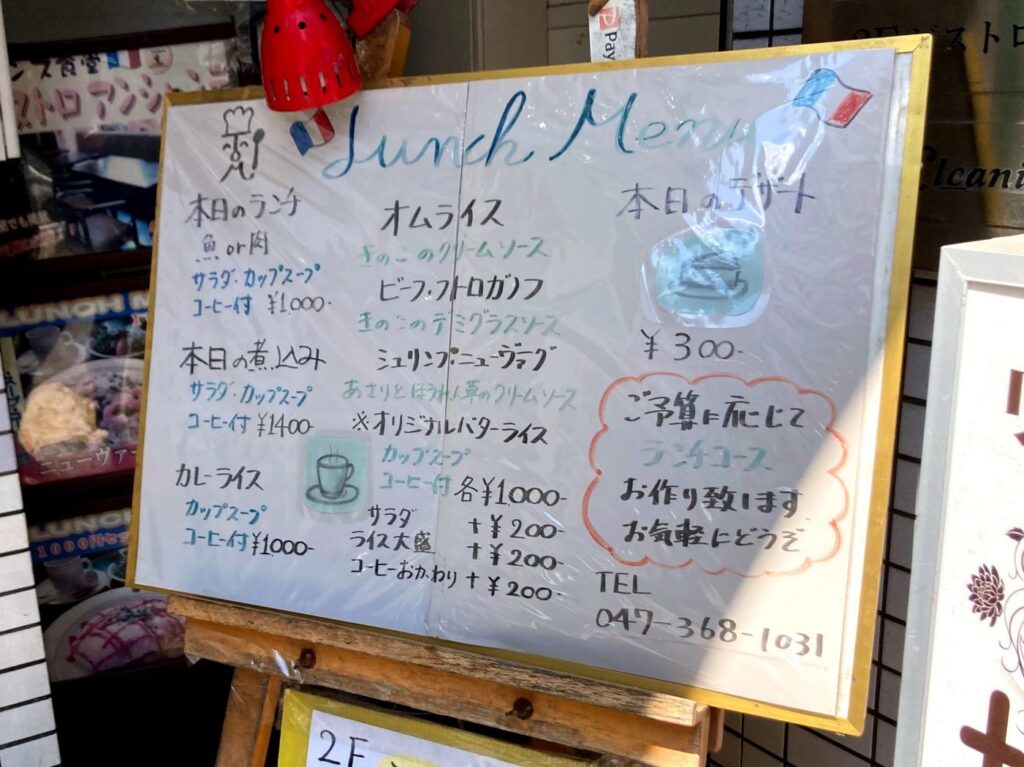 Lunch Menu
本日のランチ
魚 or 肉
サラダ・カップスープ
コーヒー付 ¥1000-
本日の煮込み
サラダ・カップスープ
コーヒー付 ¥1400-
カレーライス
カップスープ
コーヒー付 ¥1000-
オムライス
きのこのクリームソース
ビーフ・ストロガノフ
きのこのデミグラスソース
シュリンプ・ニューヴァーグ
あさりとほうれん草のクリームソース
※オリジナルバターライス
カップスープ
コーヒー付 各¥1000-
サラダ +¥200-
ライス大盛 +¥200-
コーヒーおかわり +¥200-
本日のデザート
¥300-
ご予算に応じて
ランチコース
お作り致します
お気軽にどうぞ
TEL
047-368-1031
2F
Pay
LUNCH M
ニューヴァー
LUNCH
1000円セッ